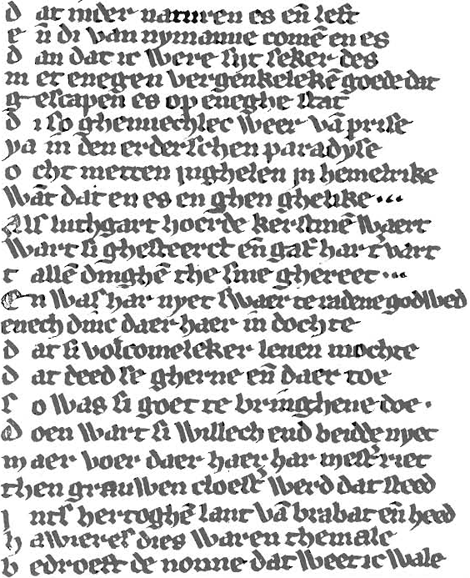 d at inder naturen es en̄ left
e n̄ di van nymanne comē en es
d an dat ic were sijt seker des
m et enegen vergenkelekē goede dat
g escapen es op eneghe stat
d i so ghenuechlec weer vā prise
ya in den erderschen paradyse
o cht metten jnghelen jn hemelrike
wāt dat en es en ghen ghelike ...
Als luthgart hoerde kerstinē waert
wart si ghesteerct en̄ gaf har vart
t allē dinghē the sine ghereet ...
En was har nyet swaer te radene godwed
enech dinc daer haer in dochte
d at si volcomeleker leuen mochte
d at deed se gherne en̄ daer toe
s o was si goet te bringhene doe .
d oen wart si willech end beidde nyet
m aer voer daer haer har mest' riet
then grauwen cloest' werd dat steed
j nts hertoghē lant vā brabāt en̄ heed
h awieres dies waren themale
b edroeft de nonne dat weet ic wale